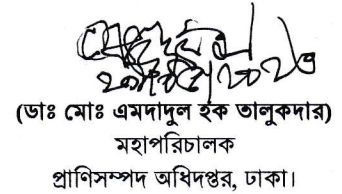 (ডাঃ মোঃ এমদাদুল হক তালুকদার)
মহাপরিচালক
প্রাণিসম্পদ অধিদপ্তর, ঢাকা।